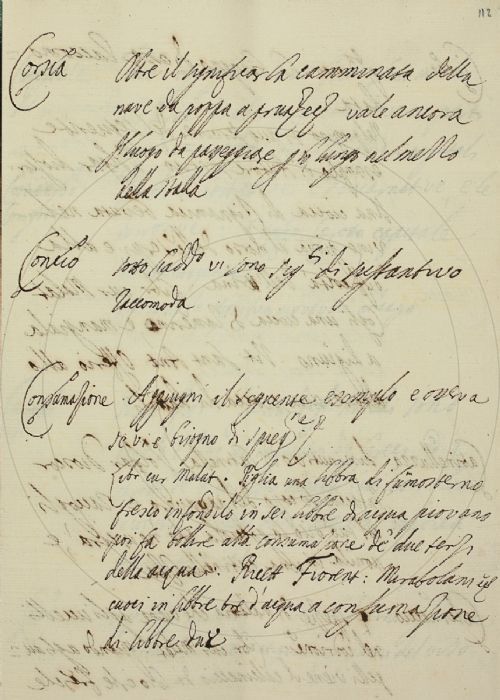 112
Corsia Oltre il significar la camminata della
nave da poppa a prua &c vale ancora
luogo da passeggiare per lungo nel mezzo
della stalla
Concio sotto l'add vi sono sig di sustantivo
raccomoda
Consumazione. Aggiugni il seguente esempio e osserva
se vi è bisogno di spieg
Libr cur Malat. Piglia una libbra di fumosterno
fresco infondilo in sei libbre di acqua piovana
poi fa bollire alla consumazione de due terzi
della acqua. Ricett Fiorent: Mirabolani
cuoci in libbre tre d'acqua a consumazione
di libbre due